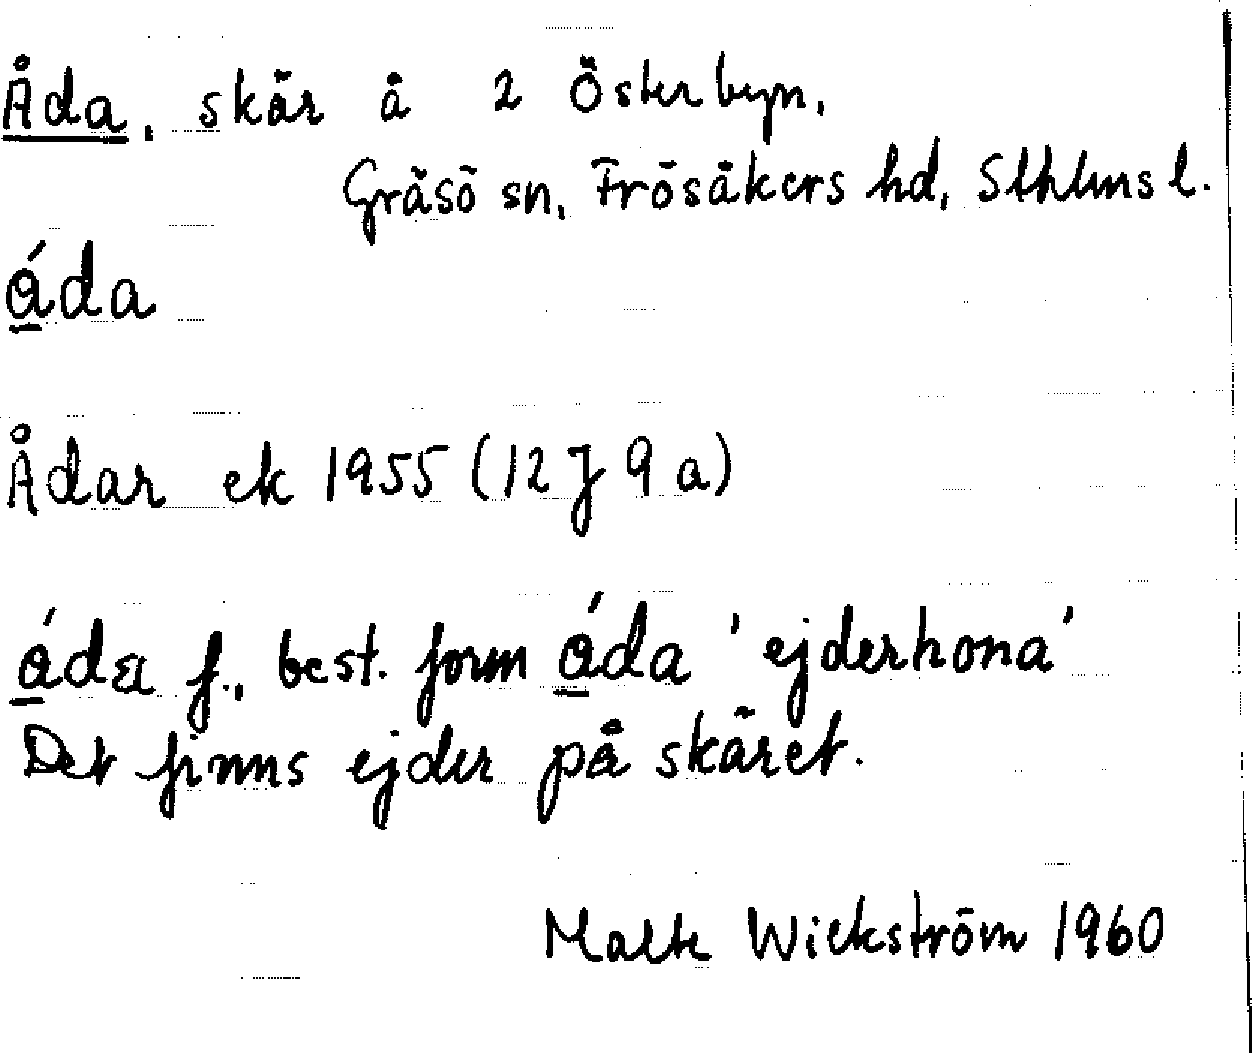 Åda, skär å 2 Österbyn,
Gräsö sn, Frösåkers hd, Sthlms l.
ǻda
Ådar ek 1955 (12 J 9 a)
ǻdæ f., best. form ǻda 'ejderhona'
Det finns ejder på skäret.
Malte Wickström 1960